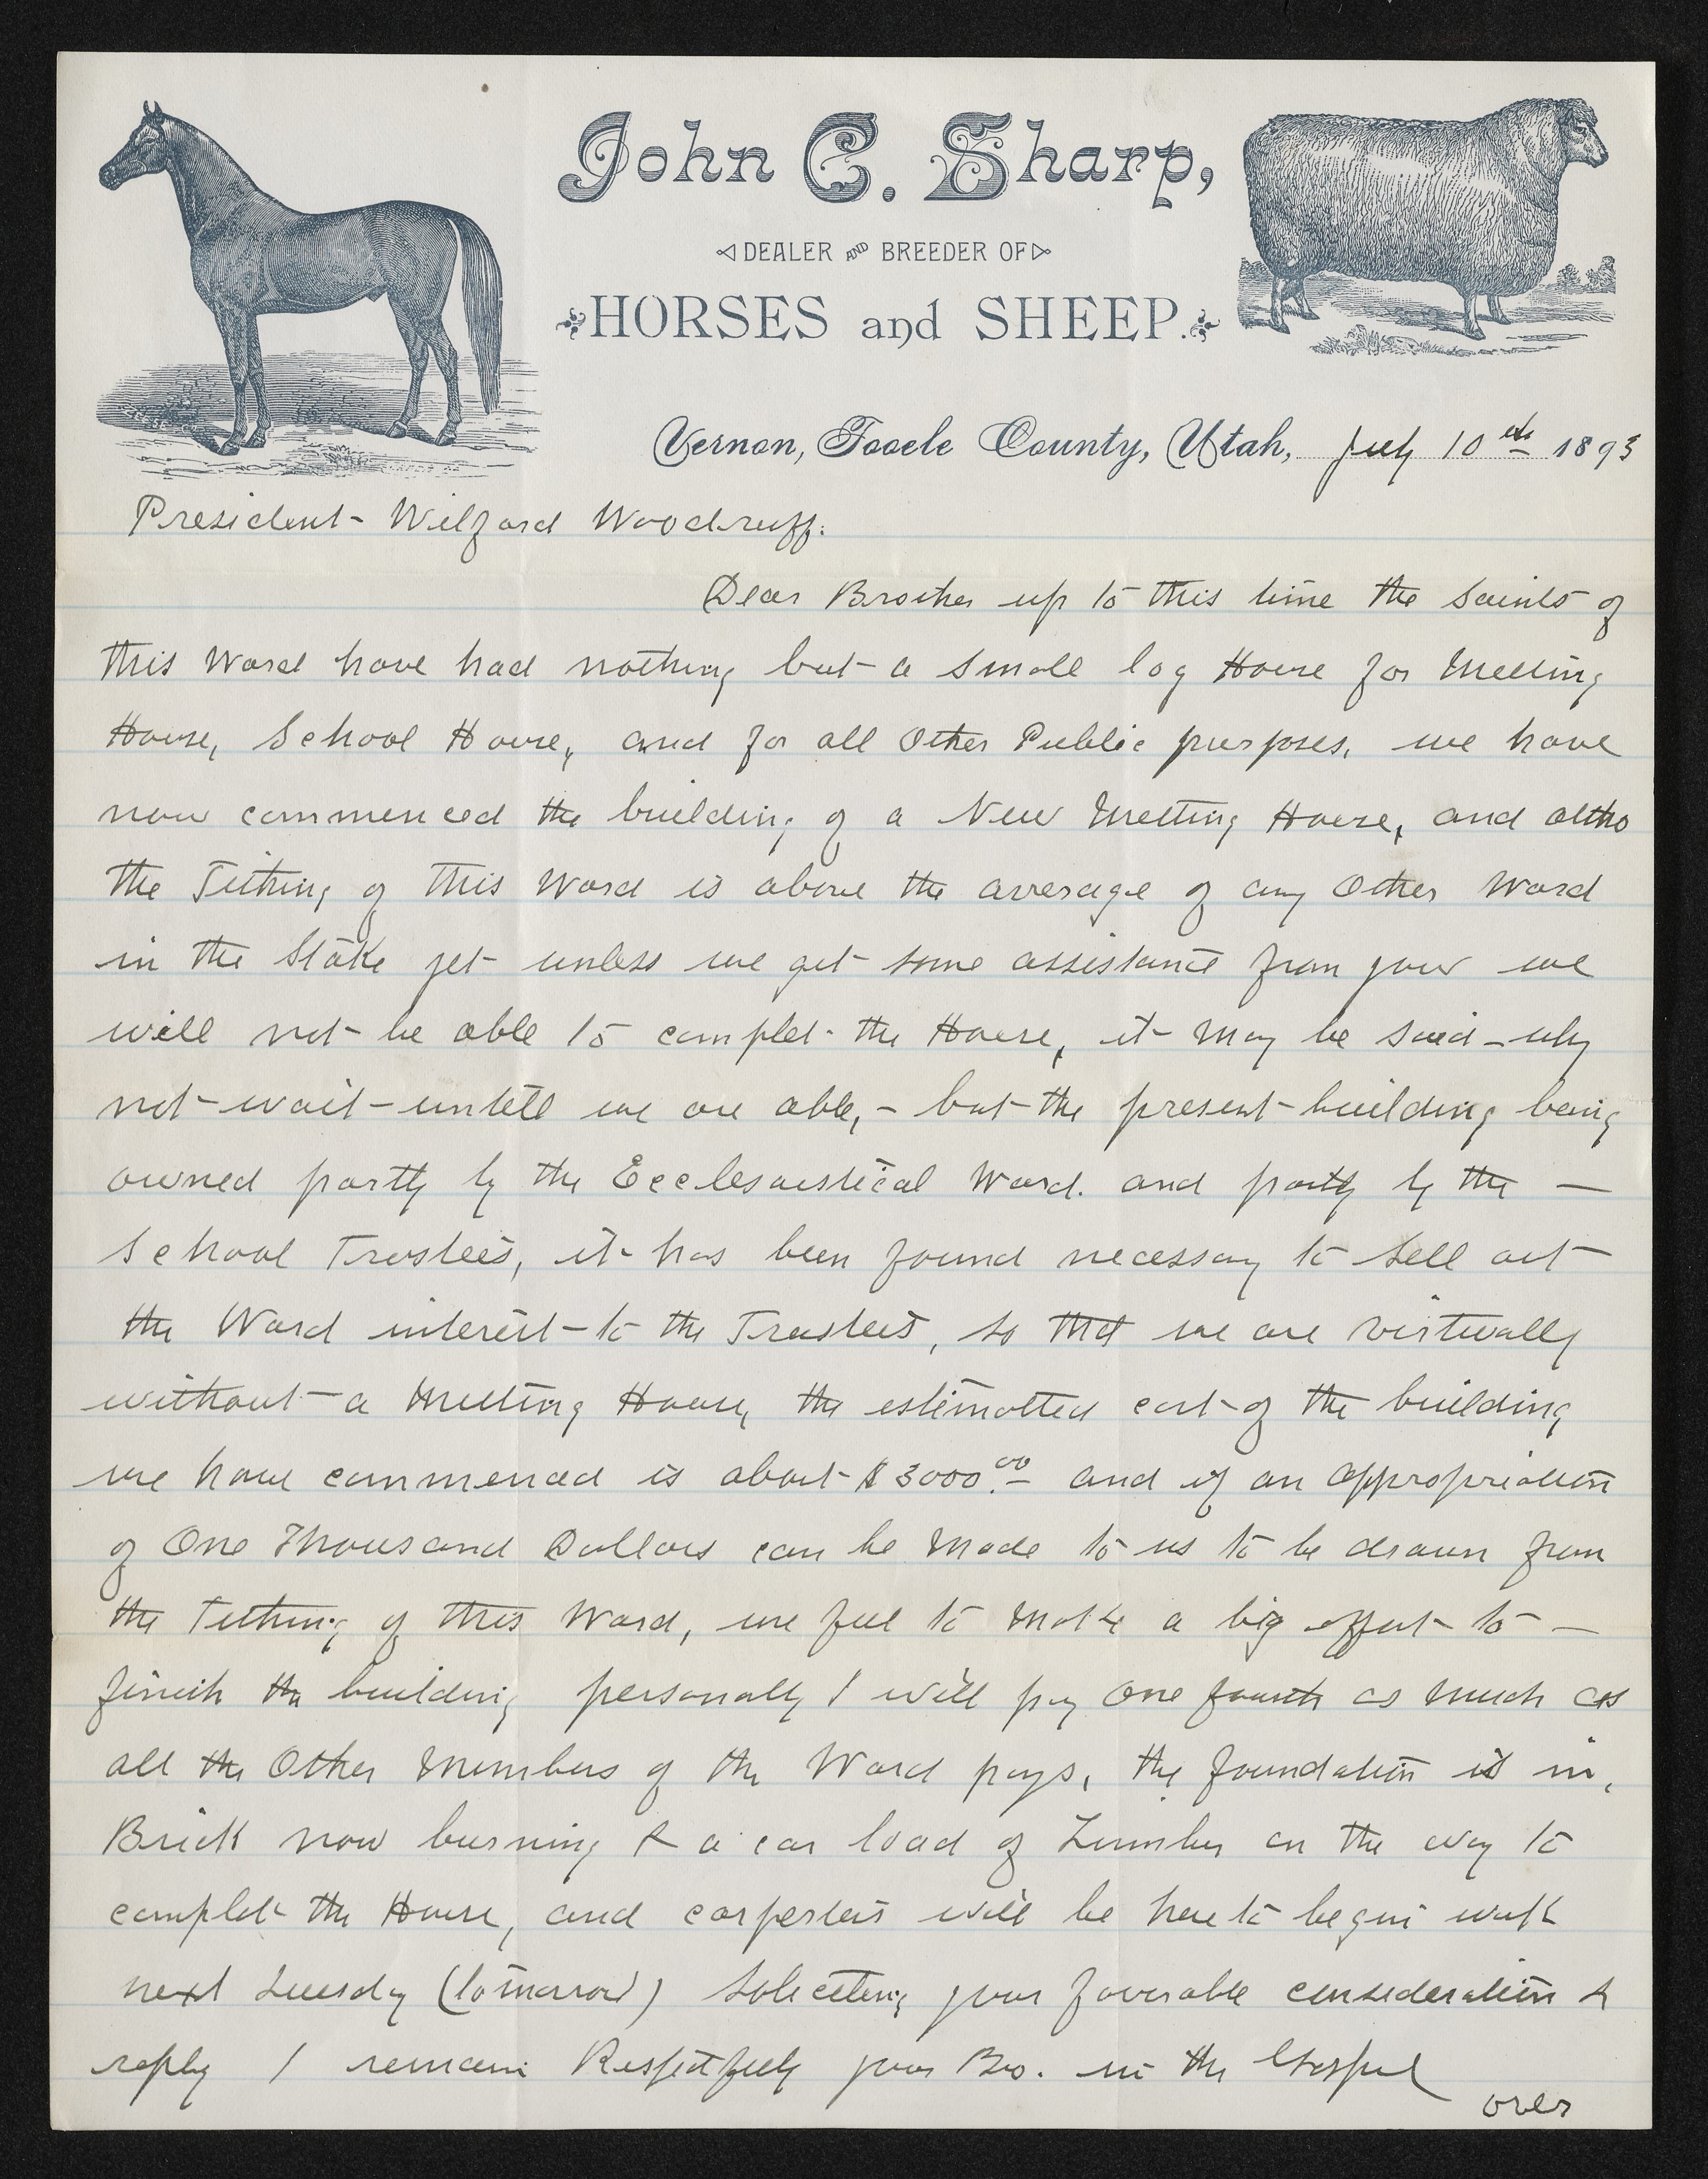 John C. Sharp,
DEALER AND BREEDER OF
HORSES and SHEEP.
Vernon, Tooele County, Utah, July 10th 1893
President Wilford Woodruff.
Dear Brother up to this time the Saints of
this Ward have had nothing but a Small log House for Meeting
House, School House, and for all Other Public purposes, we have
now commenced the building of a New Meeting House, and altho
the Tithing of this Ward is above the average of any Other Ward
in the Stake yet unless we get some assistance from your we
will not be able to complet the House, it May be said - why
not - wait - untill we are able, - but the present building being
owned partly by the Ecclesaistical Ward. and partly by the -
School Trustees, it has been found necessary to sell out
the Ward interest - to the Trustees, so that we are virtually
without a Meeting House, the estimatted cost of the building
we have commenced is about $3000.00 and if an appropriation
of One Thousand Dollars can be Made to us to be drawn from
the Tithing of this Ward, we feel to Make a big effort to -
finish the building personally I will pay One fourth as Much as
all the Other Members of the Ward pays, the foundation is in,
Brick now burning & a car load of Lumber on the way to
complet the House, and carpenters will be here to begin work
next Tuesday (tomorrow) Soliciting your favorable consideration &
reply I remain Respectfully your Bro. in the Gospel
over